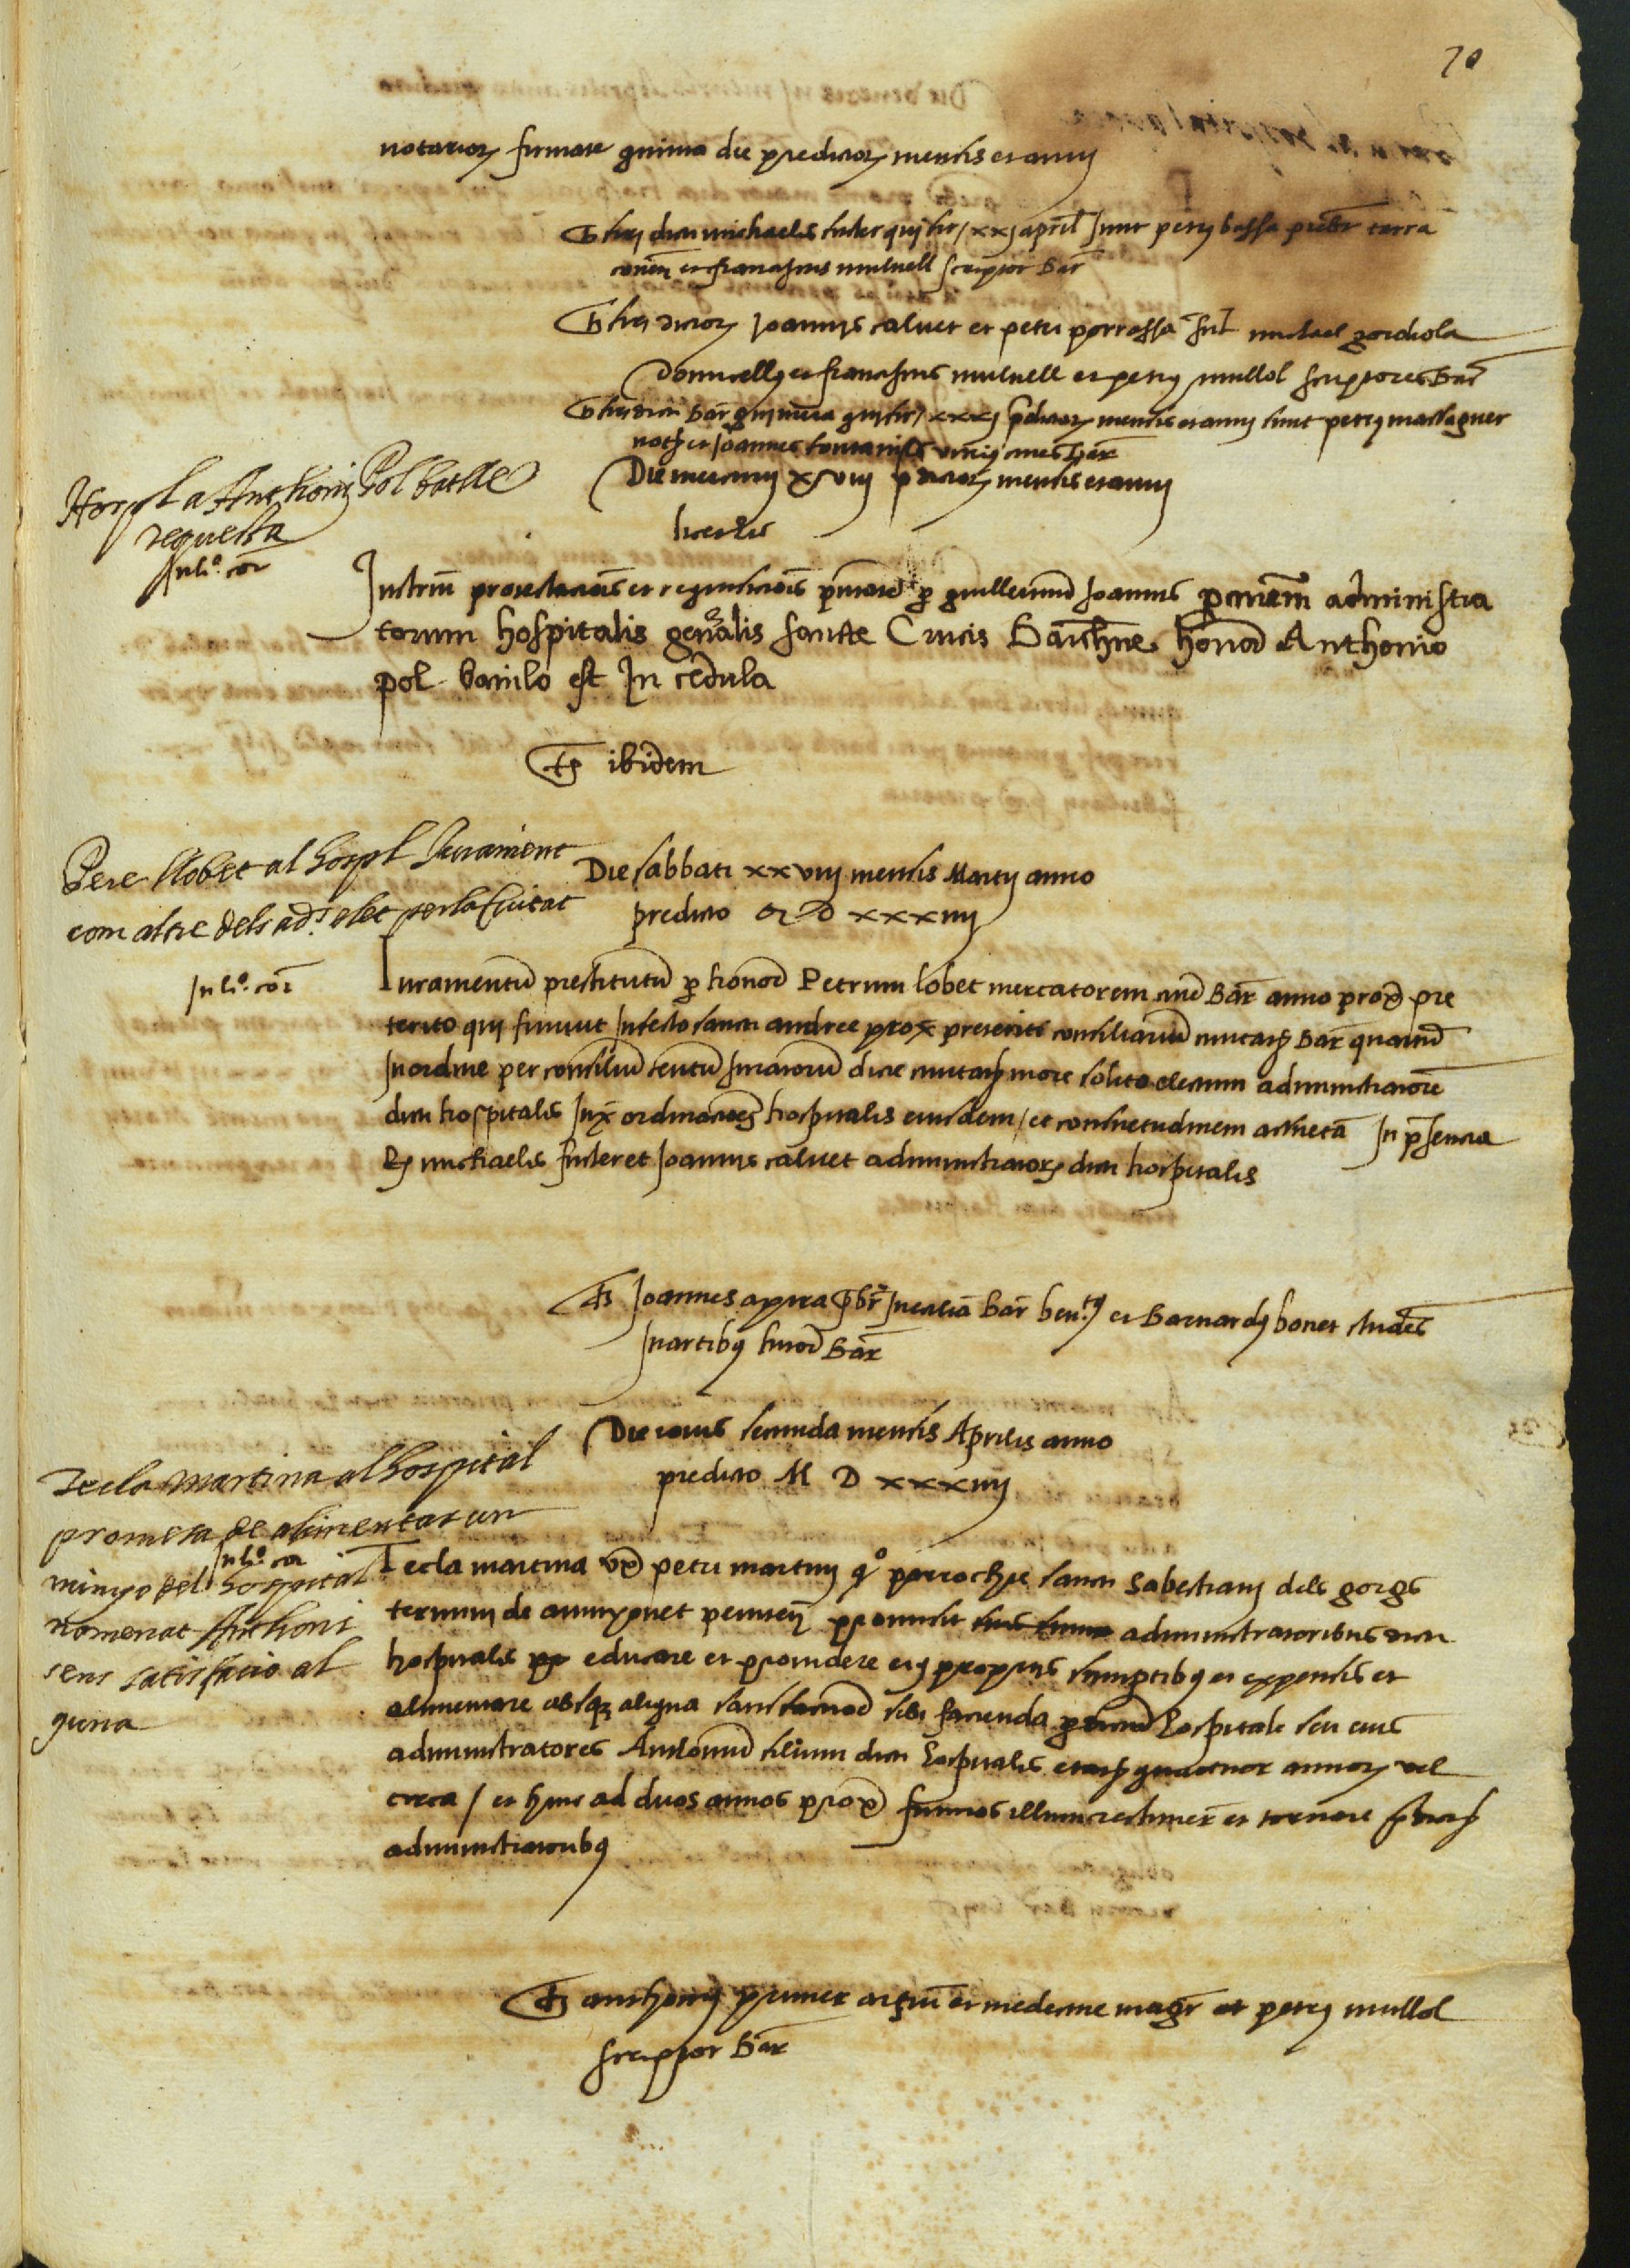 70
notarior firmare quinta die predictor mensis et anni
Ts huius dicti michaelis suster qui fir xxj april sunt petrus bassa prebr terra
conen et franciscus mulnell scriptor Bar
Ts huius dictor Joannis calvet et petri porrassa sunt michael gordiola
Domicellus et franciscus mulnell et petrus mullol scriptores Bar
Ts huius dicti Bar qui fir xxxj predictor mensis et anni sunt petrus
noth et Joannes fontanils cives Bar
Die mercurij xviij predictor mensis et anni
Hospl a Anthoni Pol batlle
requesta
In li.º cor
Instrum protestacionis et requisicionis per guillermum Joannis administra
torum hospitalis generalis sancte Crucis Barchne honor Anthonio
pol baiulo est In cedula
Ts ibidem
Pere llobet al hospl Jurament
com altre dels ad.rs elet per la Ciutat
In li.º cor
Die sabbati xxviij mensis Martij anno
predicto M D xxxiiij
Juramentu prestitutu per honor Petrum lobet mercatorem civem Bar anno prox pre
terito qui finivit In festo sancti andree prox preteriti consiliariu civitatis Bar quartu
In ordine per consiliu centu Juratoru dicte civitatis more solito electum administratore
dicti hospitalis Juxa ordinaciones hospitalis eiusdem / et consuetudinem In presencia
R michaelis suster et Joannis calvet administrator dicti hospitalis
Ts Joannes prbr In ecclia Bar ben.tus et Barnardus bonet studens
In artibus Bar
Die iovis secunda mensis Aprilis anno
predicto M D xxxiiij
Tecla martina al hospital
promesa de alimentar un
minyo del hospital
nomenat Anthoni
sens satisfacio al
guna
In li.º cor
Tecla martina uxor petri martini qº parrochie sancti Sabestiani dels gorgs
termini de peniten promisit administratoribus dicti
hospitalis educare et providere eius propriis sumptibus et expensis et
alimentare absque aliqua sibi facienda per dictum hospitale seu eius
administratores Antonium filium dicti hospitalis etatis quatuor annor vel
circa / et hinc ad duos annos prox illum restituere et tornare dictis
administratoribus
Ts anthonius primer arcium et medecine magr et petrus mullol
scriptor Bar